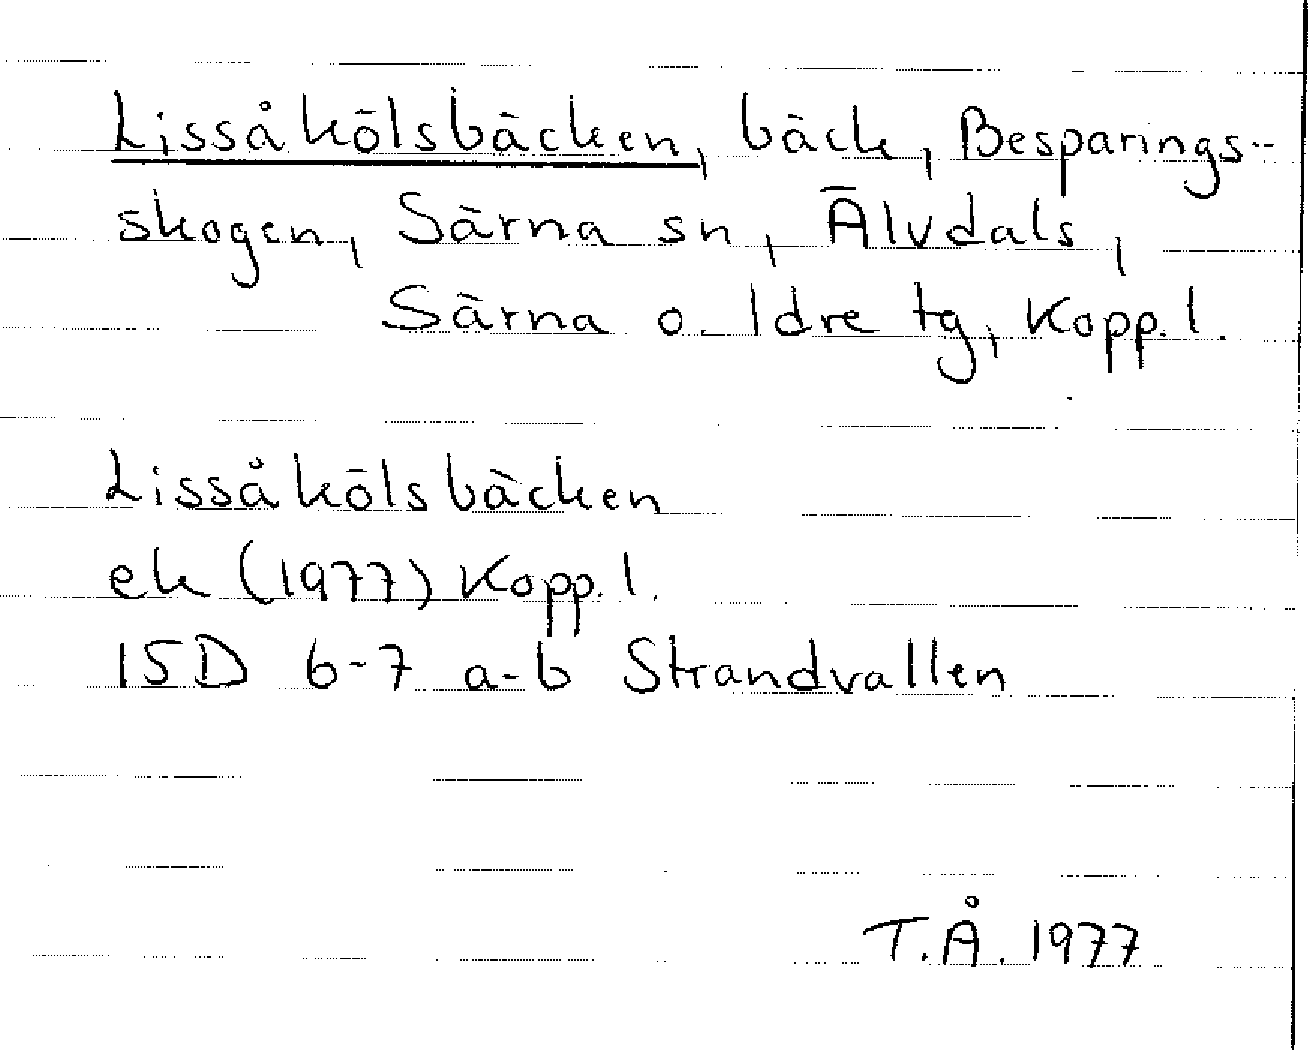 Lissåkölsbäcken, bäck, Besparings-
skogen, Särna sn, Älvdals,
Särna o Idre tg, Kopp. l.
Lissåkölsbäcken
ek (1977) Kopp. l.
15D 6-7 a-b Strandvallen
T.Å. 1977